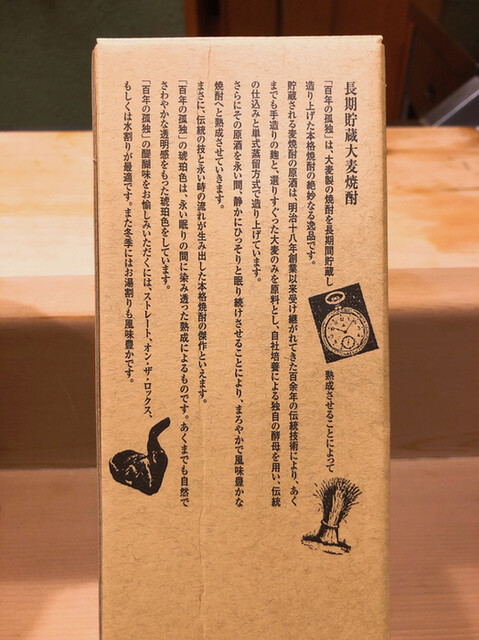 長期貯蔵大麦焼酎
「百年の孤独」は、大麦製の焼酎を長期間貯蔵し、熟成させることによって
造り上げた本格焼酎の絶妙なる逸品です。
貯蔵される麦焼酎の原酒は、明治十八年創業以来受け継がれてきた百余年の伝統技術により、あく
までも手造りの麹と、選りすぐった大麦のみを原料とし、自社培養による独自の酵母を用い、伝統
の仕込みと単式蒸留方式で造り上げています。
さらにその原酒を永い間、静かにひっそりと眠り続けさせることにより、まろやかで風味豊かな
焼酎へと熟成させていきます。
まさに、伝統の技と永い時の流れが生み出した本格焼酎の傑作といえます。
「百年の孤独」の琥珀色は、永い眠りの間に染み透った熟成によるものです。あくまでも自然で
さわやかな透明感をもった琥珀色をしています。
「百年の孤独」の醍醐味をお愉しみいただくには、ストレート、オン・ザ・ロックス、
もしくは水割りが最適です。また冬季にはお湯割りも風味豊かです。